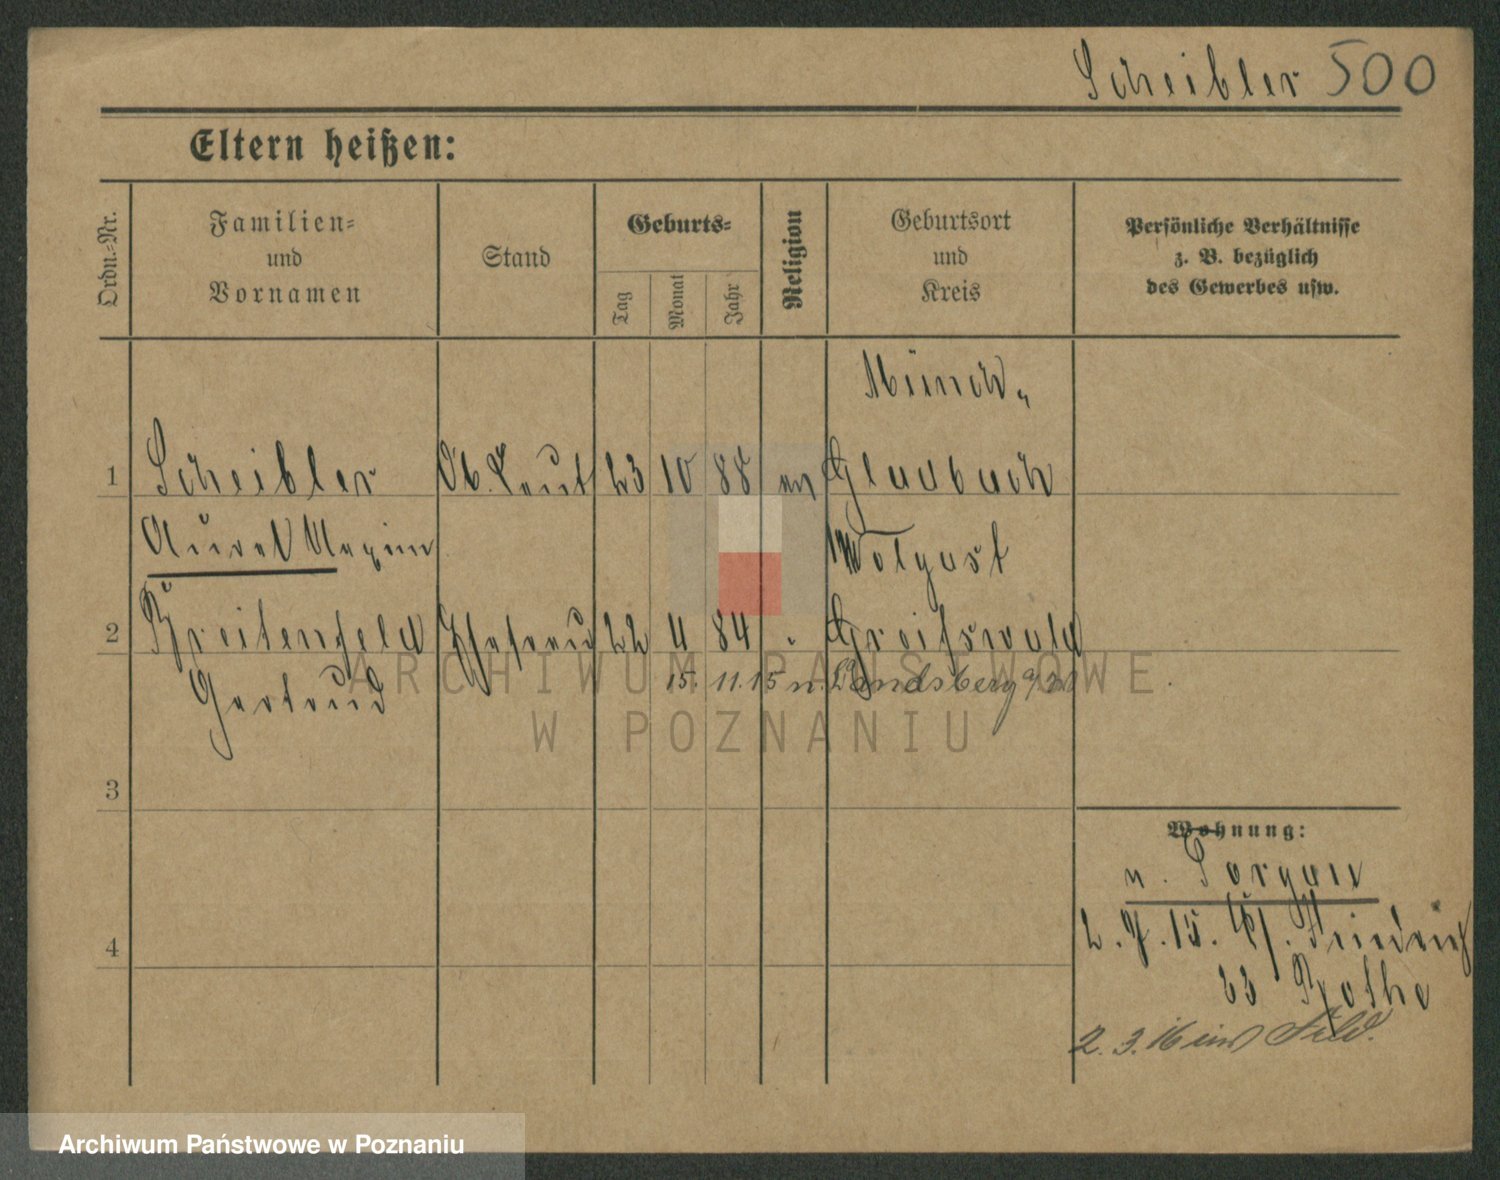 Scheibler 500
Eltern heißen:
Ordn.-Nr.
Familien-
und
Vornamen
Stand
Geburts-
Tag
Monat
Jahr
Religion
Geburtsort
und
Kreis
Persönliche Verhältnisse
z. B. bezüglich
des Gewerbes usw.
Münch-
1 Scheibler Ob. Leut 23 10 88 ev Gladbach
Aurel Maxim Wolgast
2 Breitenfeld Ehefrau 22 4 84 " Greifswald
Gertrud 15. 11. 15 n. Landsberg a/W
3
4
Wohnung:
v. Torgau
2. 9. 15. Friedrich
23 Rothe
2. 3. 16 ins Feld.
ARCHIWUM PAŃSTWOWE
W POZNANIU
Archiwum Państwowe w Poznaniu